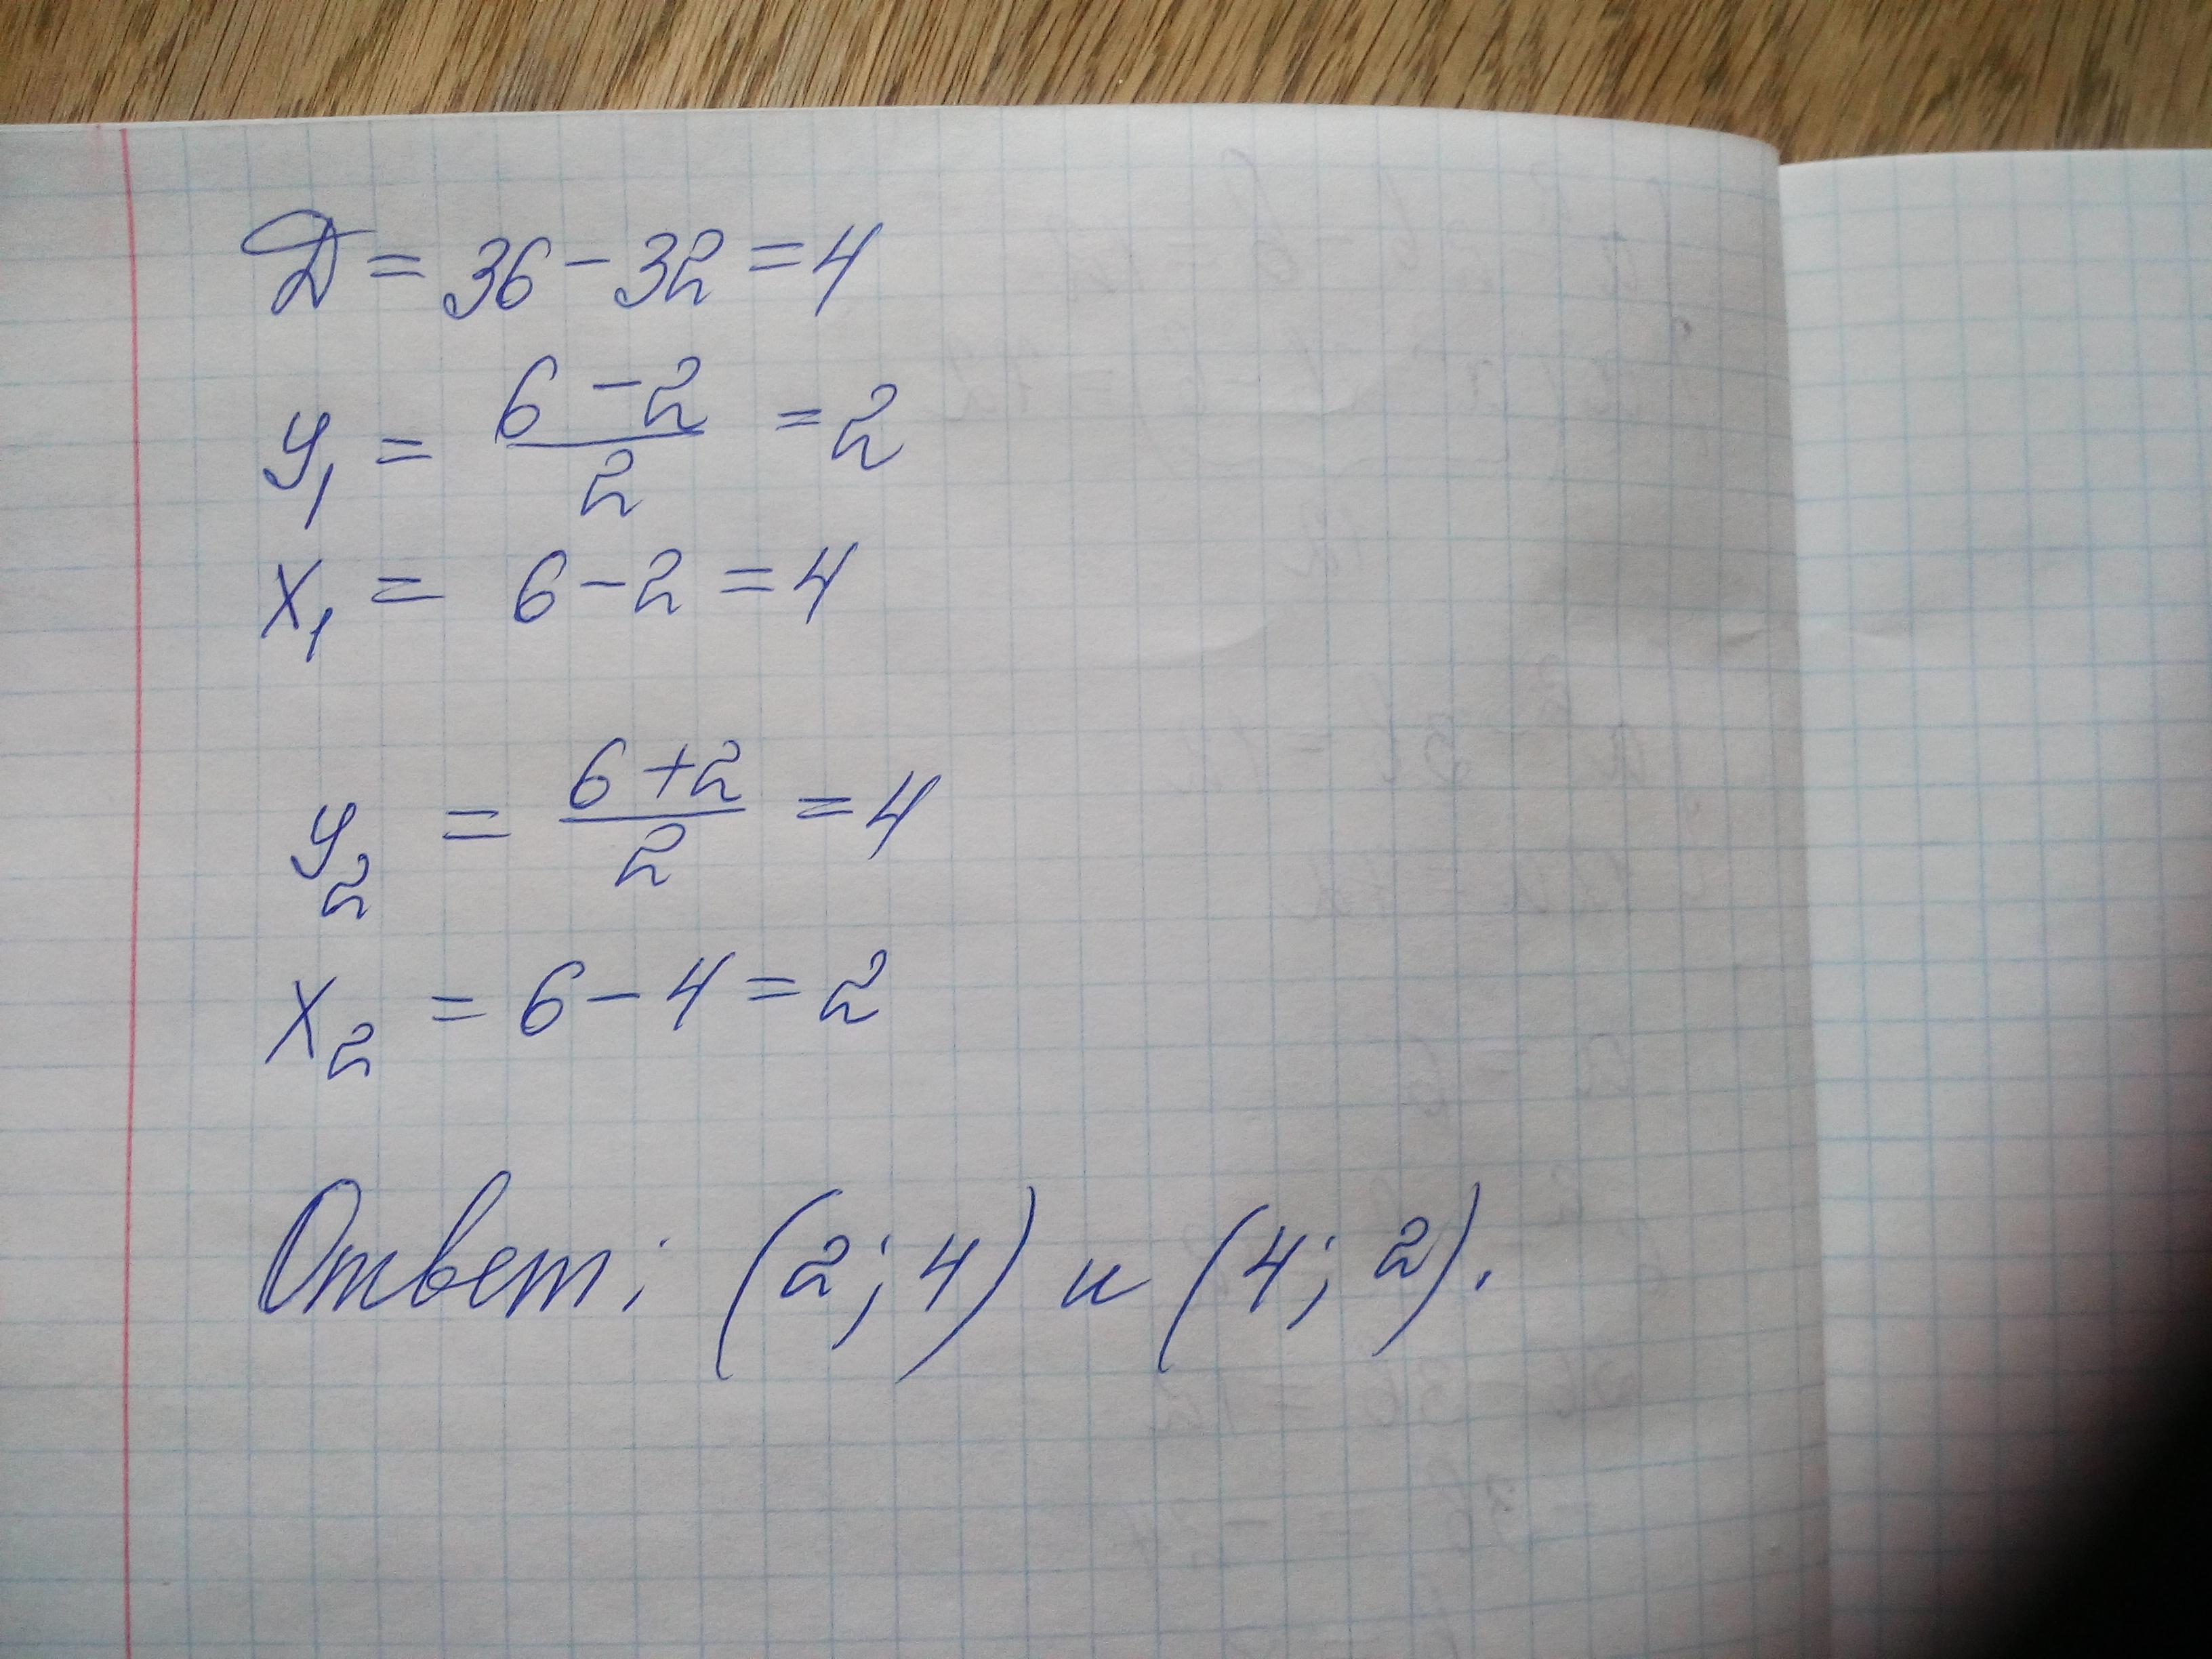 Д = 36 - 32 = 4
y₁ = (6 - 2)/2 = 2
x₁ = 6 - 2 = 4
y₂ = (6 + 2)/2 = 4
x₂ = 6 - 4 = 2
Ответ: (2; 4) и (4; 2).